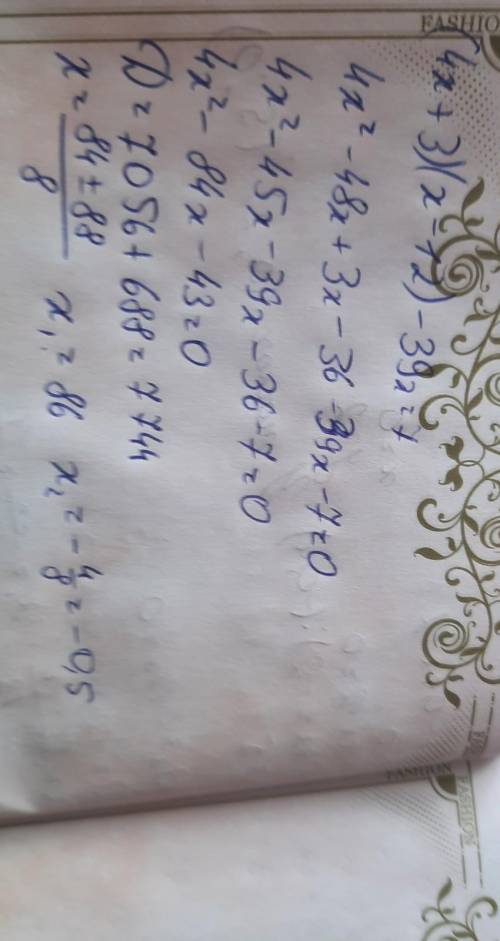 FASHIO
(4x + 3)(x - 12) - 39x = 7
4x² - 48x + 3x - 36 - 39x - 7 = 0
4x² - 45x - 39x - 36 - 7 = 0
4x² - 84x - 43 = 0
D = 7056 + 688 = 7744
x = 84 ± 88 / 8 x₁ = 86 x₂ = - 4/8 = - 0,5
FASHION
FASHION